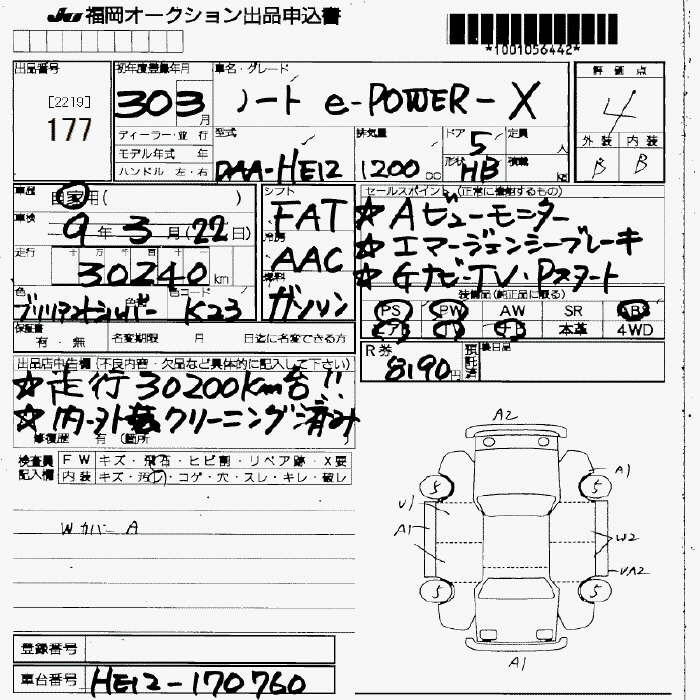 JU 福岡オークション出品申込書
*1001056442*
出品番号
[2219]
177
初年度登録年月
30 3月
車名・グレード
ノート e-POWER-X
評価点
4
ディーラー・並行
モデル年式 年
ハンドル 左・右
型式
DAA-HE12
排気量
1200 cc
ドア 5
形状 HB
定員 人
積載 kg
外装 内装
B B
車歴
自家用( )
車検
9年3月(22日)
走行
30240km
色
ブリリアントシルバー
色替
色コード
K23
シフト
FAT
冷房
AAC
燃料
ガソリン
セールスポイント(正常に機能するもの)
☆Aビューモニター
☆エマージェンシーブレーキ
☆Gナビ-TV・Pスタート
装備品(純正品に限る)
PS PW AW SR ABS
エアB ナビ テレビ 本革 4WD
保証書
有・無
名変期限 月 日迄に名変できる方
R券
8190円
預託済
後日品
出品店申告欄(不良内容・欠品など具体的に記入して下さい)
☆走行30200km台!!
☆内・外装クリーニング済み
修復歴 有(箇所
検査員記入欄
FW キズ・飛石・ヒビ割・リペア跡・X要
内装 キズ・汚れ・コゲ・穴・スレ・キレ・破レ
Wカバー A
A2
A1
5 5
U1
A1
W2
UA2
5 5
A1
登録番号
車台番号
HE12-170760